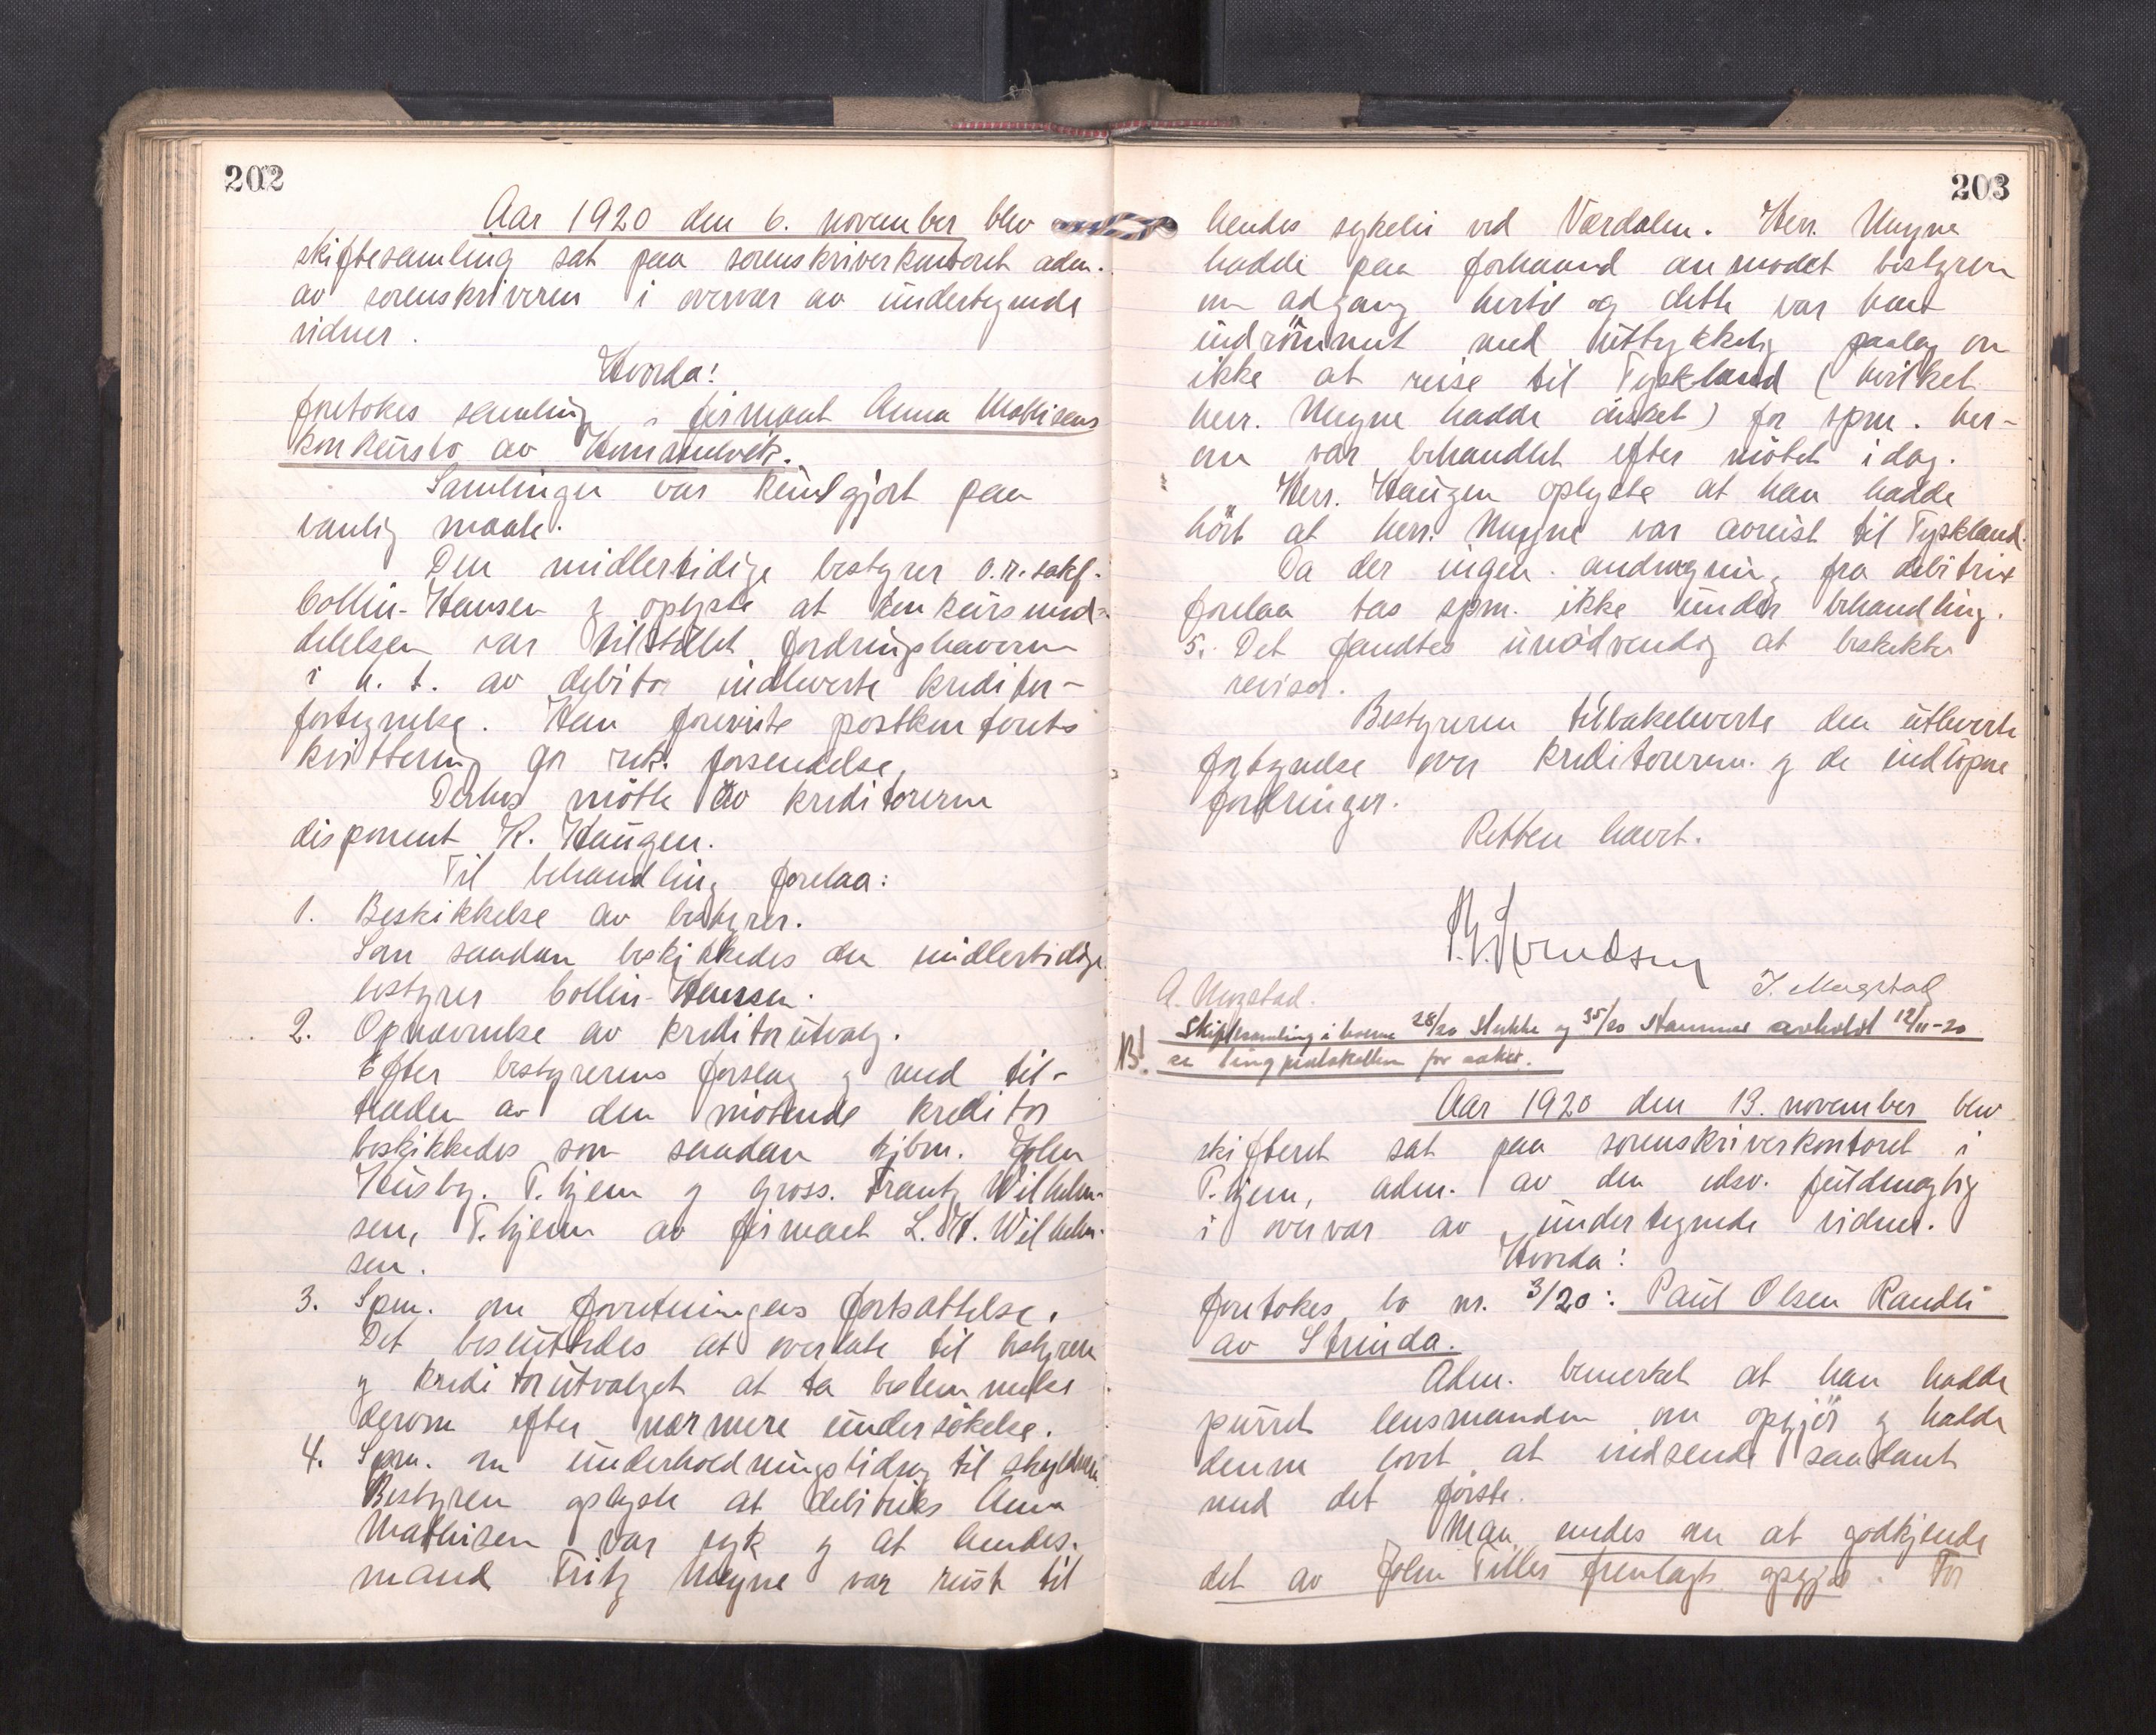 202
Aar 1920 den 6. november blev
skiftesamling sat paa sorenskriverkontoret adm.
av sorenskriveren i overvær av undertegnede
vidner.
Hvorda!
foretokes samling i firmaet Anna Mathisens
konkursbo av Hommelvik.
Samlingen var kundgjort paa
vanlig maate.
Den midlertidige bestyrer o.r.sakf.
Collin-Hansen oplyste at konkursmed-
delelsen var tilstillet fordringshaverne
i h. t. av debitor indleverte kreditor-
fortegnelse. Han foreviste postkontorets
kvittering for rek. forsendelse.
Derhos møtte av kreditorerne
disponent K. Haugen.
Til behandling forelaa:
1. Beskikkelse av bestyrer.
Som saadan beskikkedes den midlertidige
bestyrer Collin-Hansen.
2. Opnævnelse av kreditorutvalg.
Efter bestyrerens forslag og med til-
træden av den møtende kreditor
beskikkedes som saadan kjbm. John
Husby, T.hjem og gross. Frantz Wilhelm-
sen, T.hjem av firmaet L. H. Wilhelm-
sen.
3. Spm. om forretningens fortsættelse.
Det besluttedes at overlate til bestyreren
og kreditorutvalget at ta bestemmelse
derom efter nærmere undersøkelse.
4. Spm. om underholdningsbidrag til skyldneren
Bestyreren oplyste at debitriks Anna
Mathisen var syk og at hendes
mand Fritz Meyne var reist til
203
hendes sykeleie ved Værdalen. Herr. Meyne
hadde paa forhaand anmodet bestyreren
om adgang hertil og dette var ham
indrømmet med uttrykkelig paalæg om
ikke at reise til Tyskland (hvilket
herr. Meyne hadde ønsket) før spm. her-
om var behandlet efter møtet idag.
Herr. Haugen oplyste at han hadde
hørt at herr. Meyne var avreist til Tyskland.
Da der ingen andragning fra debitrix
forelaa tas spm. ikke under behandling.
5. Det fandtes unødvendig at beskikke
revisor.
Bestyreren tilbakeleverte den utleverte
fortegnelse over kreditorerne og de indløpne
fordringer.
Retten hævet.
A. Mogstad. J. Mogstad
NB! Skiftesamling i boerne 28/20 Stokke og 35/20 Stammes avholdt 12/11-20
se tingprotokollen for saker.
Aar 1920 den 13. november blev
skifteret sat paa sorenskriverkontoret i
T.hjem, adm. av den edsv. fuldmægtig
i overvær av undertegnede vidner.
Hvorda!
foretokes bo nr. 3/20: Paul Olsen Randli
av Strinda.
Adm. bemerket at han hadde
purret lensmanden om opgjør og hadde
denne lovet at indsende saadant
med det første.
Man enedes om at godkjende
det av John Tiller fremlagte opgjør. For